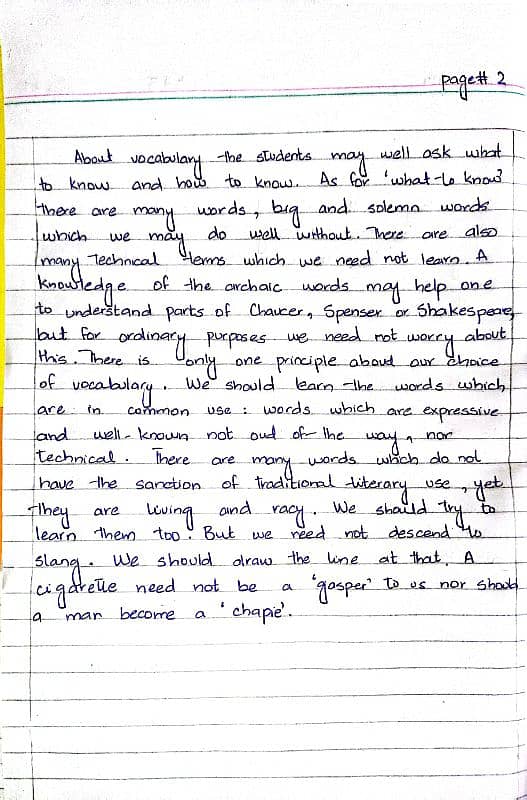 page# 2
About vocabulary the students may well ask what
to know and how to know. As for 'what-to know'
there are many words, big and solemn words
which we may do well without. There are also
many Technical terms which we need not learn. A
knowledge of the archaic words may help one
to understand parts of Chaucer, Spenser or Shakespeare,
but for ordinary purposes we need not worry about
this. There is only one principle about our choice
of vocabulary. We should learn the words which
are in common use : words which are expressive
and well-known not out of the way, nor
technical. There are many words which do not
have the sanction of traditional literary use, yet
they are living and racy. We should try to
learn them too. But we need not descend to
slang. We should draw the line at that. A
cigarette need not be a 'gasper' to us nor should
a man become a 'chapie'.